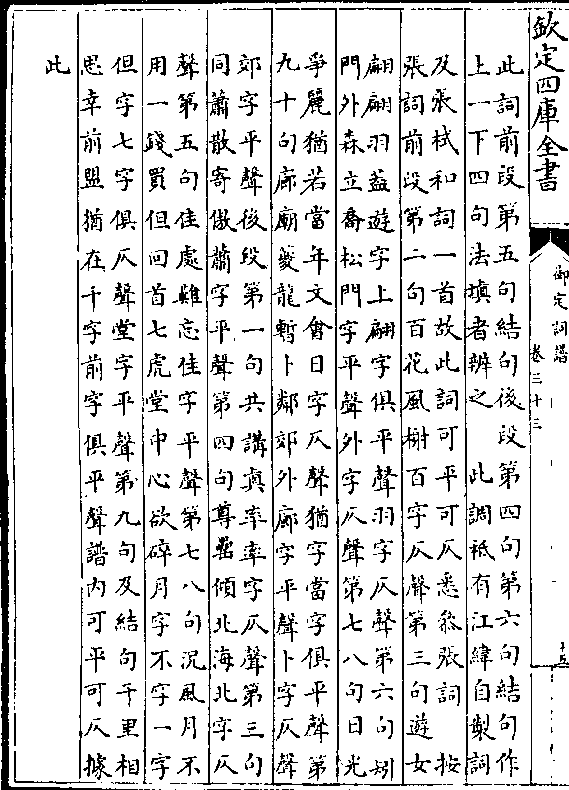 欽定四庫全書
御定詞譜
卷三十三
此詞前段第五句結句後段第四句第六句結句作
上一下四句法填者辨之　此調祇有江緯自製詞
及張栻和詞一首故此詞可平可仄悉參張詞　按
張詞前段第二句百花風榭百字仄聲第三句遊女
翩翩羽蓋遊字上翩字俱平聲羽字仄聲第六句矧
門外森立喬松門字平聲外字仄聲第七八句日光
爭麗猶若當年文會日字仄聲猶字當字俱平聲第
九十句廊廟夔龍暫卜鄰郊外廊字平聲卜字仄聲
郊字平聲後段第一句共講真率率字仄聲第三句
同蕭散寄傲蕭字平聲第四句尊罍傾北海北字仄
聲第五句佳處雖忘佳字平聲第七八句況風月不
用一錢買但回首七虎堂中心欲碎月字不字一字
但字七字俱仄聲堂字平聲第九句及結句千里相
思幸前盟猶在千字前字俱平聲譜内可平可仄據
此